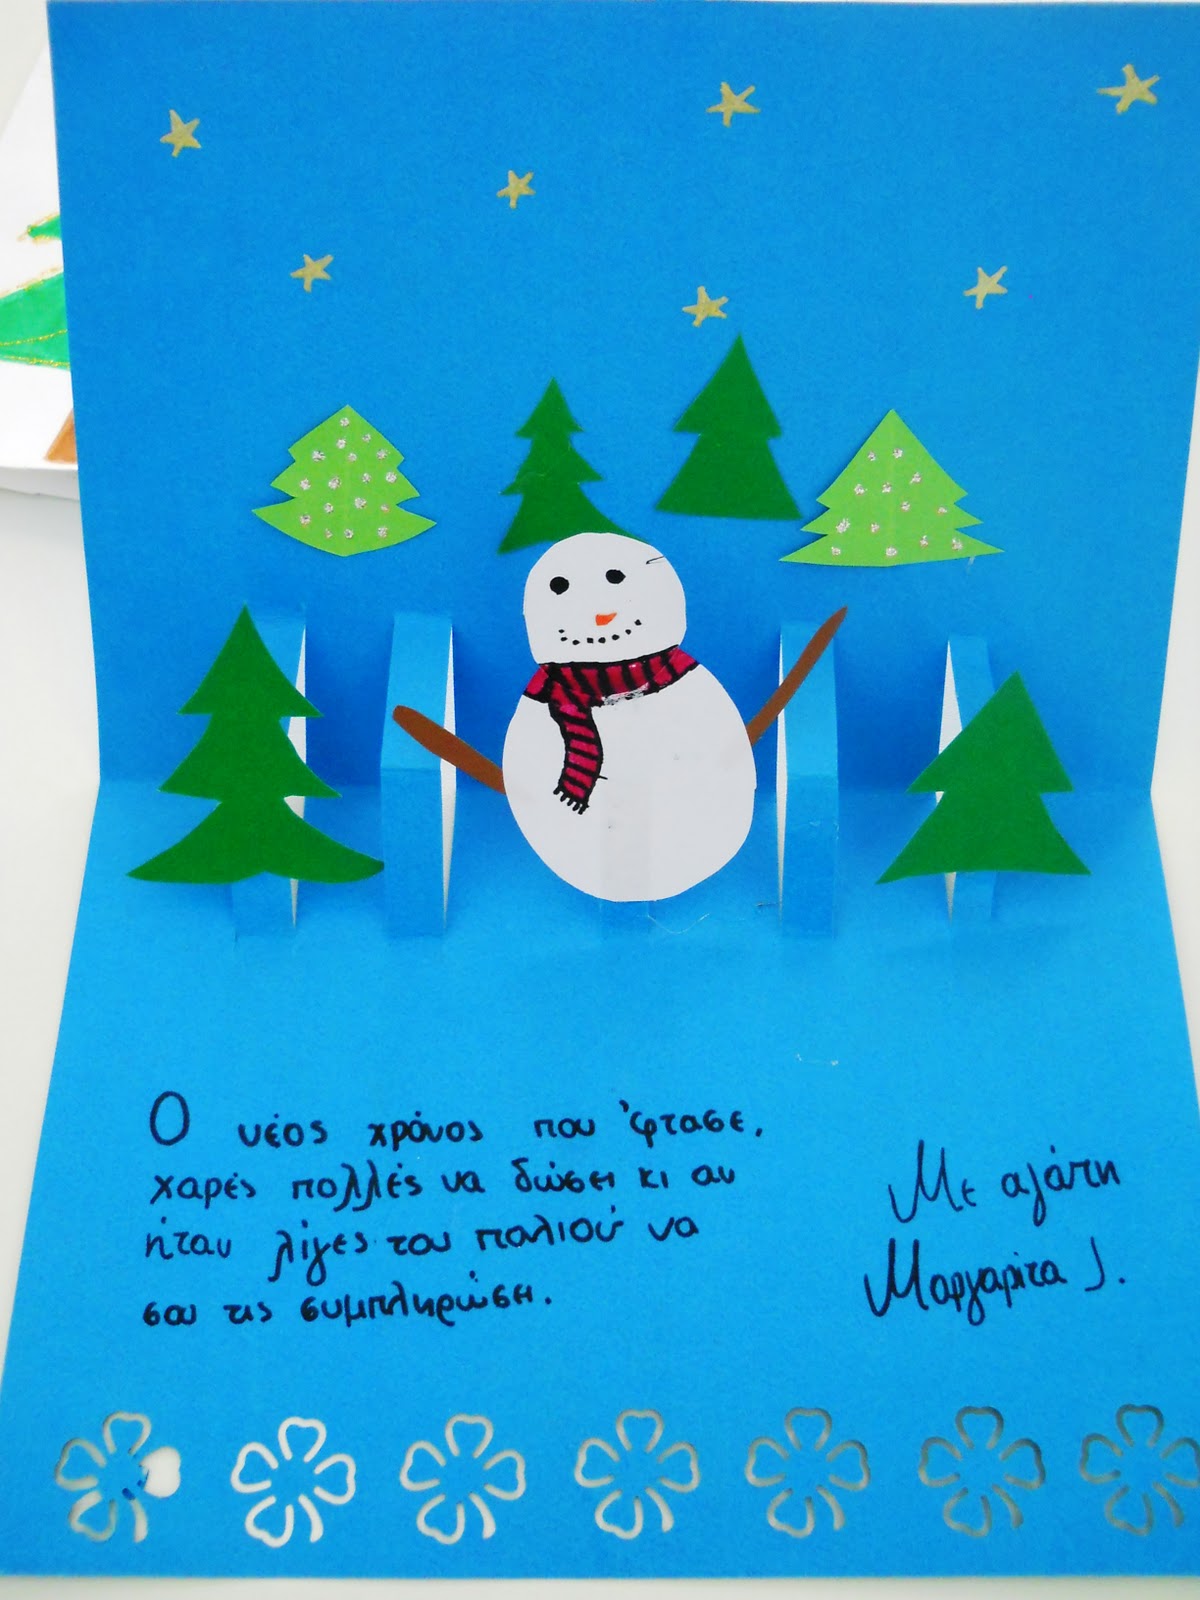 Ο νέος χρόνος που 'φτασε,
χαρές πολλές να δώσει κι αν
ήταν λίγες του παλιού να
σου τις συμπληρώσει.
Με αγάπη
Μαργαρίτα J.